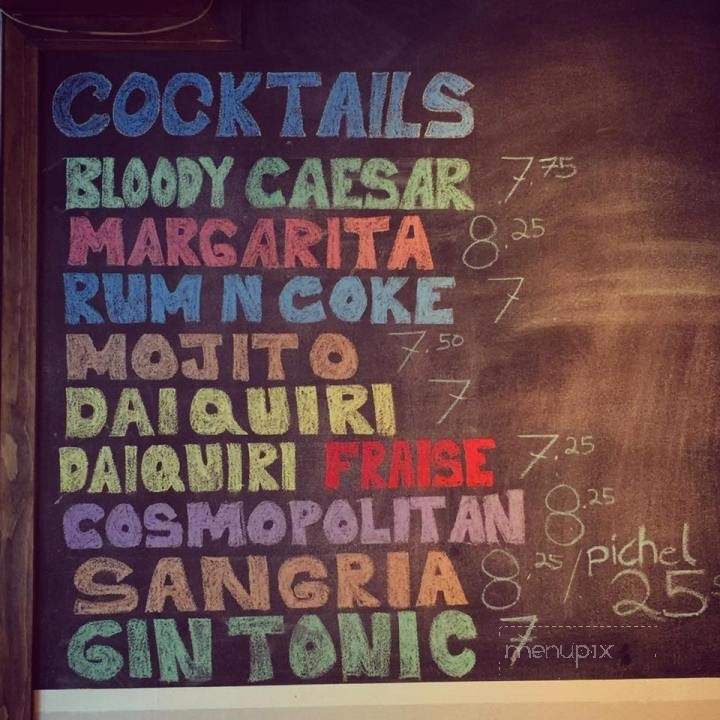 COCKTAILS
BLOODY CAESAR 7.75
MARGARITA 8.25
RUM N COKE 7
MOJITO 7.50
DAIQUIRI 7
DAIQUIRI FRAISE 7.25
COSMOPOLITAN 8.25
SANGRIA 8.25/pichel 25$
GIN TONIC 7
menupix